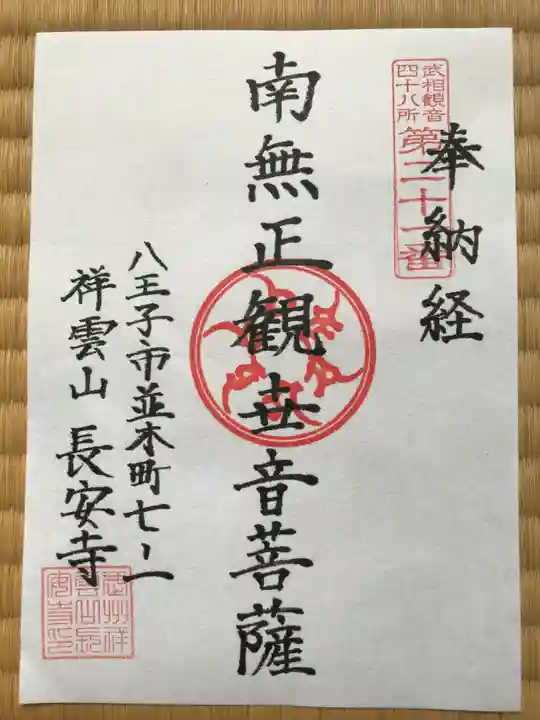 武相観音
四十八所
第二十一番
奉納経
南無正観世音菩薩
八王子市並木町七ノ一
祥雲山 長安寺